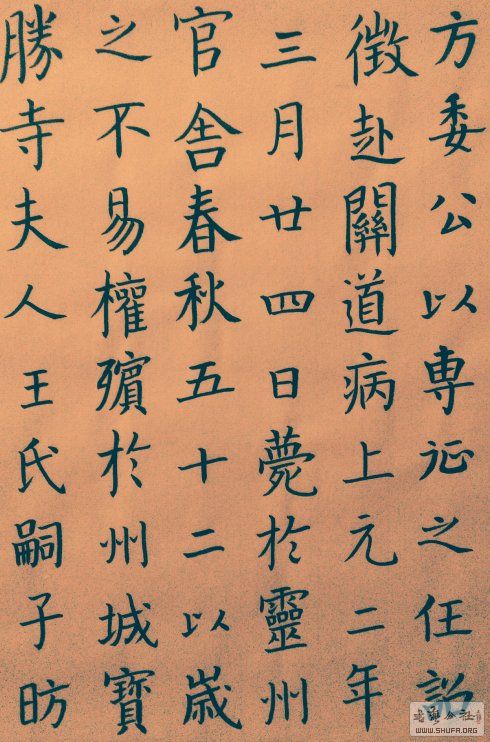 方委公以専征之任詔
徵赴關道病上元二年
三月廿四日薨於靈州
官舍春秋五十二以歲
之不易權殯於州城寶
勝寺夫人王氏嗣子昉
书法公社
WWW.SHUFA.ORG